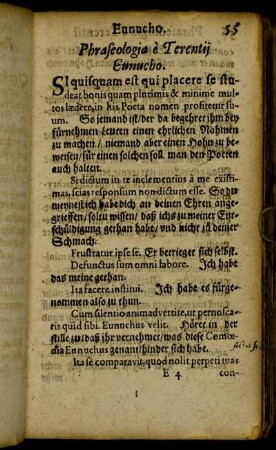 Eunucho. 55
Phraseologia è Terentij
Eunucho.
SI quisquam est qui placere se stu-
deat bonis quam plurimis & minime mul-
tos lædere, in his Poeta nomen profitetur su-
um. So jemand ist/der da begehret jhm bey
fürnehmen Leuten einen ehrlichen Nahmen
zu machen / niemand aber einen Hohn zu be-
weisen/für einen solchen soll man den Poeten
auch halten.
Si dictum in te inclementius à me existi-
mas, scias responsum non dictum esse. So du
meynest ich habe dich an deinen Ehren ange-
grieffen/soltu wissen/ daß ichs zu meiner Ent-
schüldigung gethan habe/ vnd nicht zu deiner
Schmach.
Frustratur ipse se. Er betrieget sich selbst.
Defunctus sum omni labore. Ich habe
das meine gethan.
Ita facere institui. Ich habe es fürge-
nommen also zu thun.
Cum silentio animadvertite, ut pernosca-
tis quid sibi Eunuchus velit. Höret in der
stille zu/daß ihr vernehmet/was diese Comœ-
dia Eunuchus genant/hinder sich habe.
Ita se comparavit, quod nolit perpeti was
E 4 con-